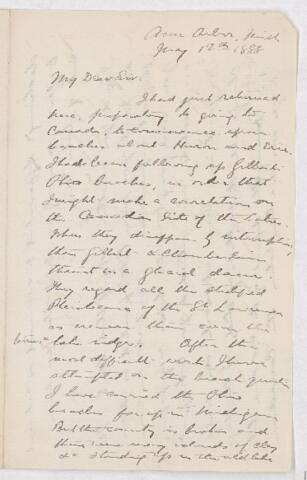 Ann Arbor, Mich
May 12th 1888
My Dear Sir.
I had just returned
here, preparatory to going to
Canada, to commence upon
beaches about Huron and Erie.
I had been following up Gilbert's
Ohio beaches, in order that
I might make a correlation on
the Canadian side of the lakes.
When they disappear by interruption,
then Gilbert & Chamberlin
them a glacial dam.
They regard all the
of the St Lawrence
as
lake ridges. After the
most difficult work I have
attempted on the beach question
I have carried the Ohio
beaches far up in Michigan
But the country is broken and
there were many islands of clay
&c standing up in the old lake